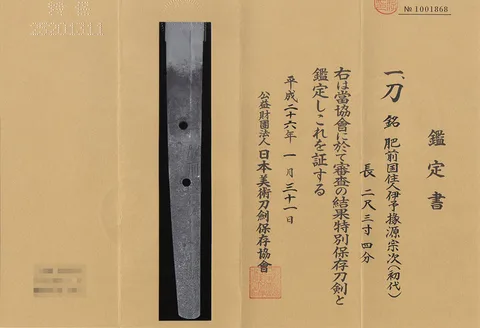 № 1001868
鑑定書
一、刀 銘 肥前国住人伊予掾源宗次(初代)
長 二尺三寸四分
右は當協會に於て審査の結果特別保存刀劍と
鑑定しこれを証する
平成二十六年 一月 三十一日
公益財團法人 日本美術刀劍保存協會